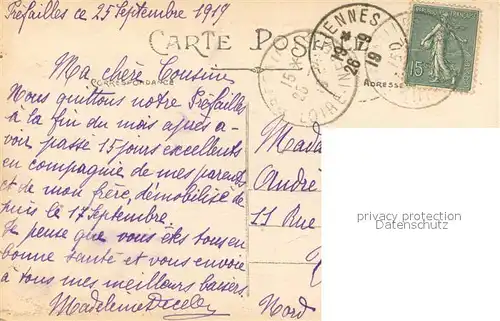 Préfailles ce 25 Septembre 1919
CARTE POSTALE
CORRESPONDANCE
ADRESSE
Ma chère Cousine
Nous quittons notre Préfailles
à la fin du mois après a-
voir passé 15 jours excellents
en compagnie de mes parents
et de mon frère, démobilisé de-
puis le 17 Septembre.
Je pense que vous êtes tous en
bonne santé et vous envoie
à tous mes meilleurs baisers.
Madeleine
Mada
André
11 Rue
Nord
15c
privacy protection
Datenschutz